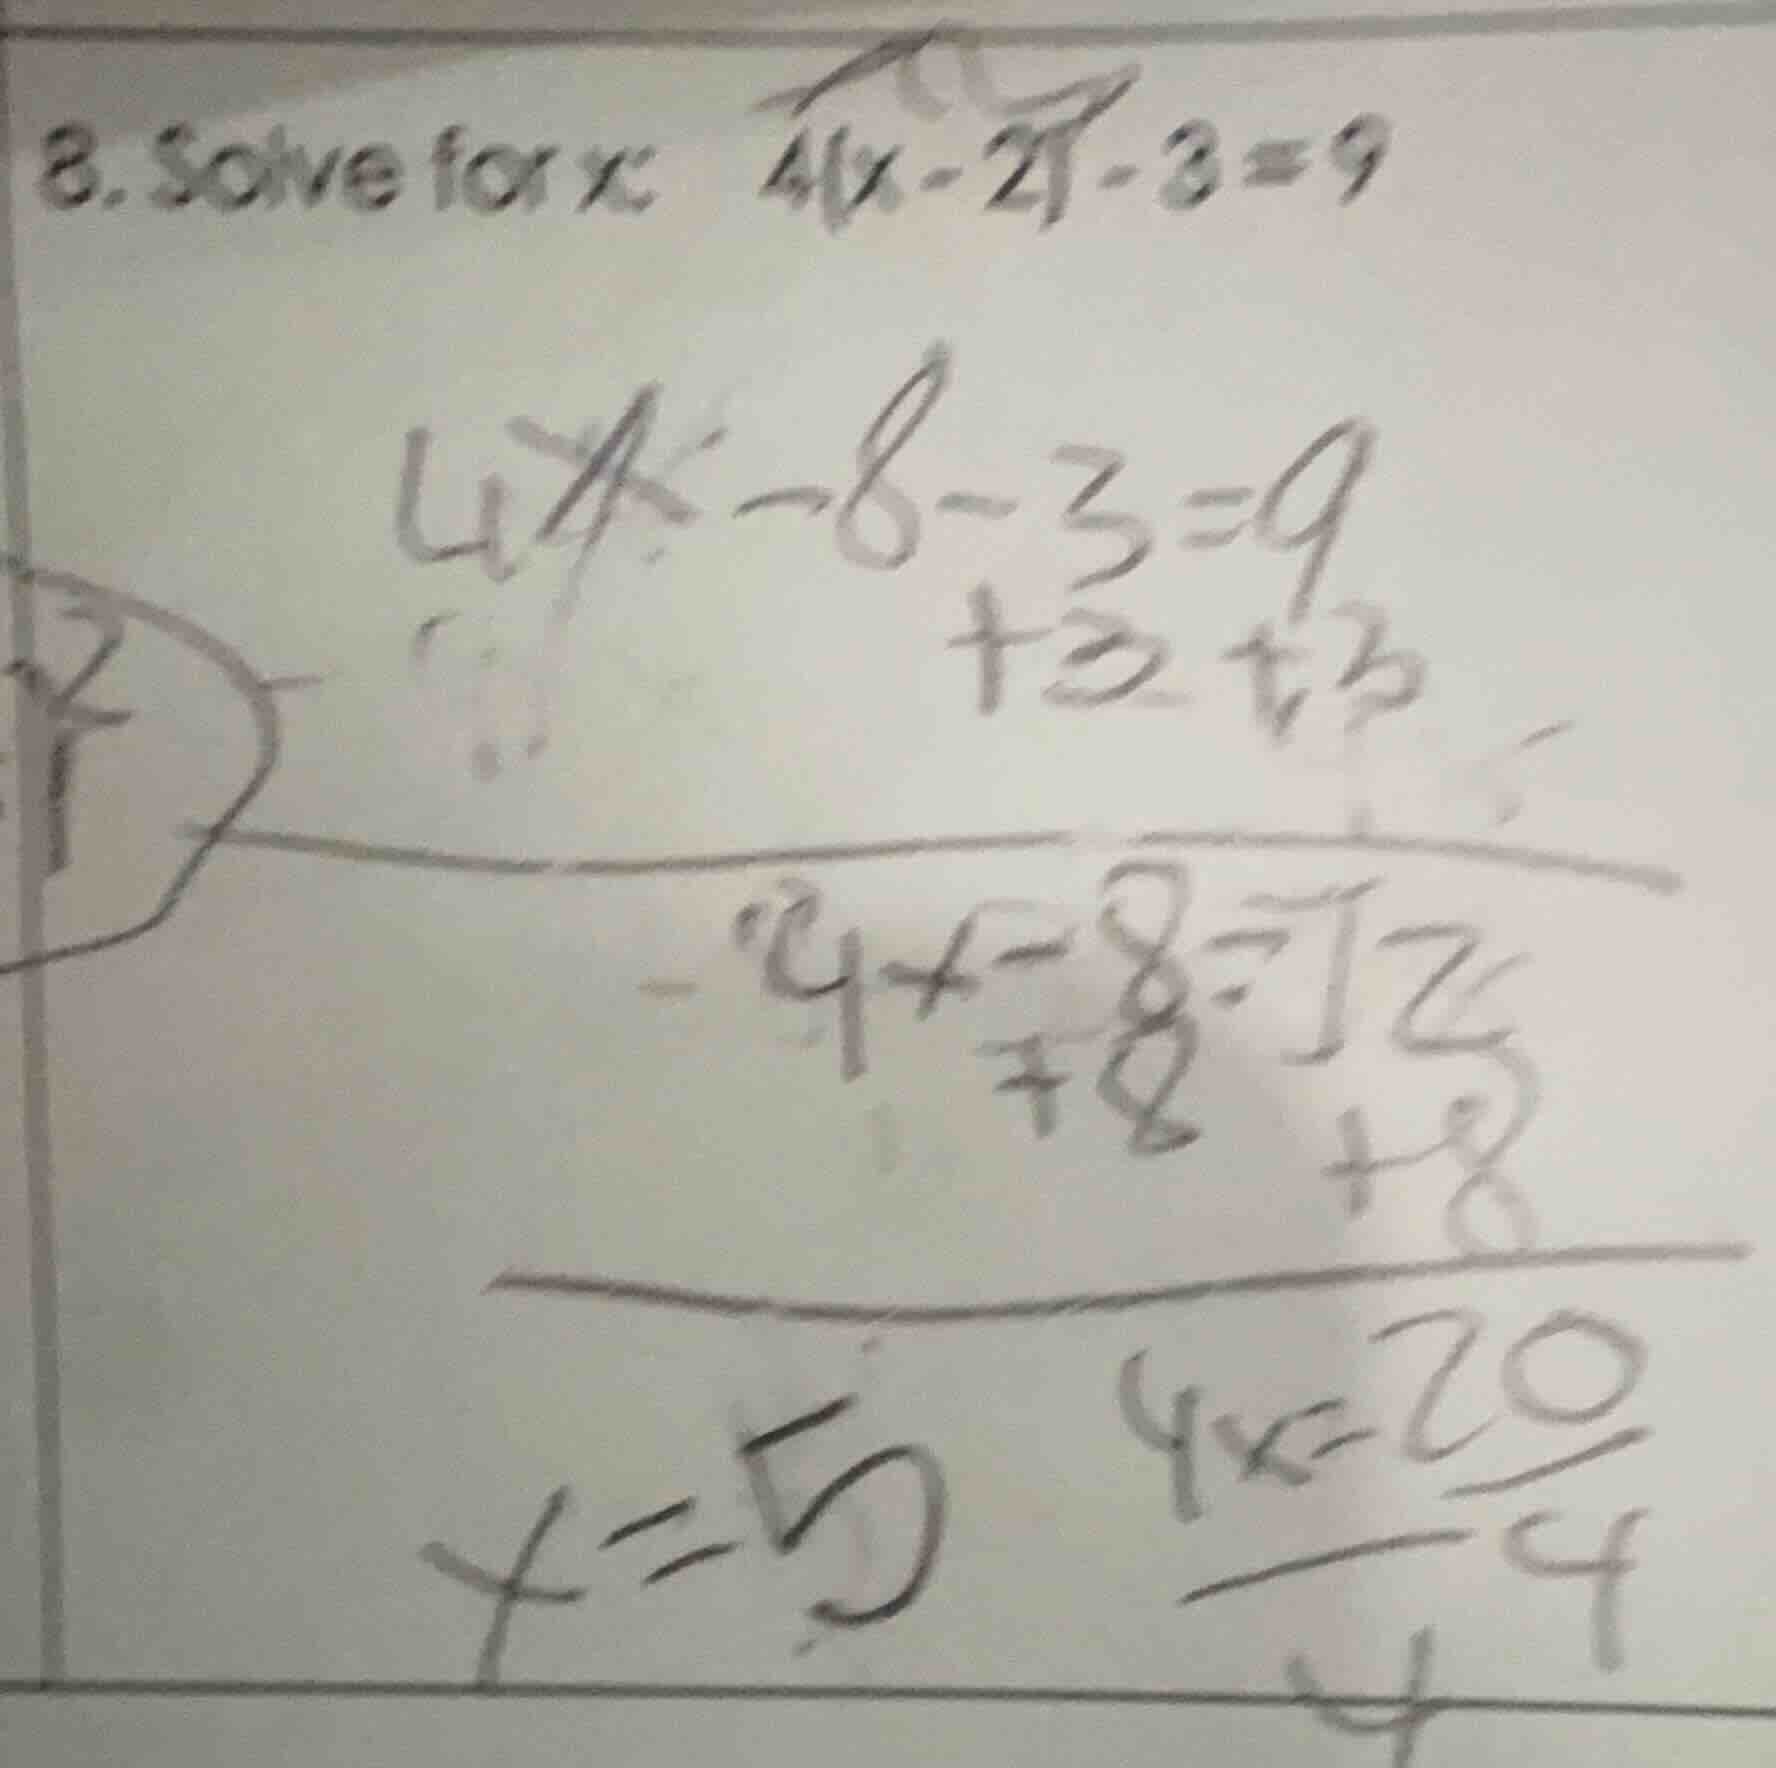 8. Solve for x: 4(x - 2) - 3 = 9
4x - 8 - 3 = 9
+3 +3
4x - 8 = 12
+8
+8
4x = 20
4
x = 5
4